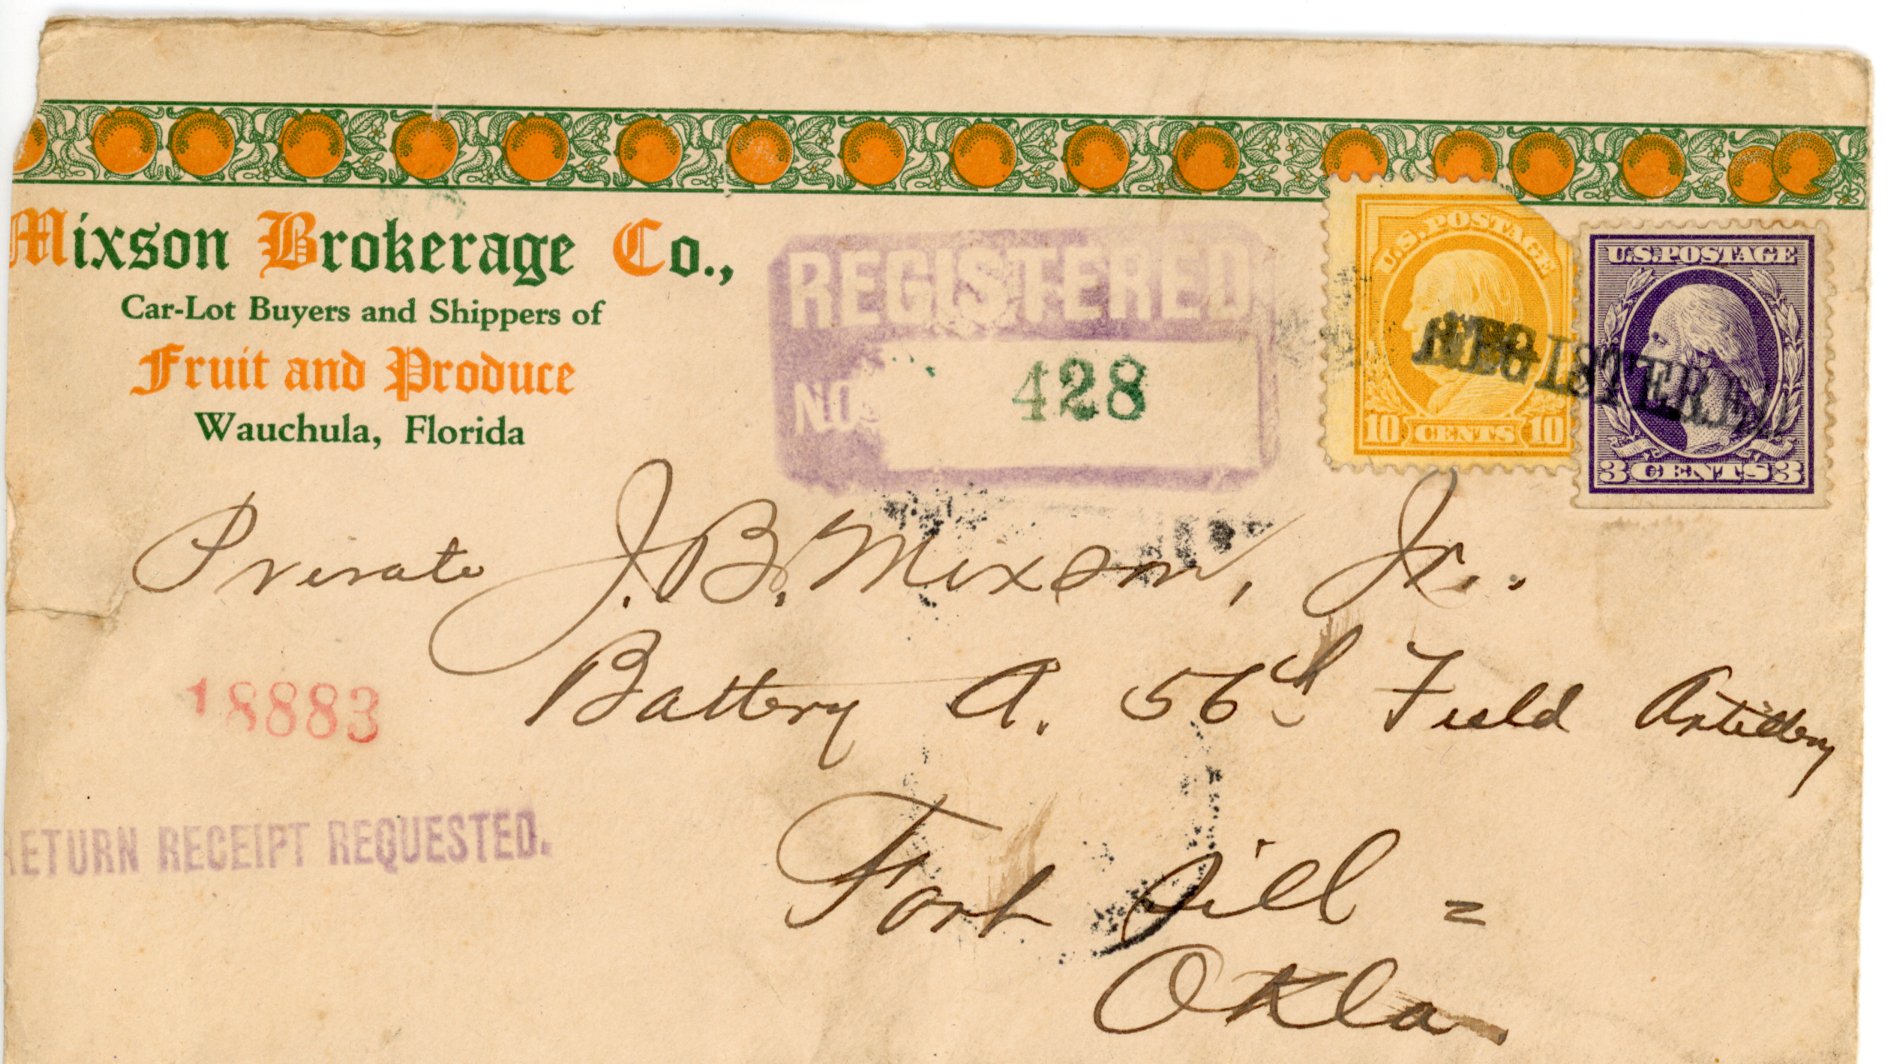 Mixson Brokerage Co.,
Car-Lot Buyers and Shippers of
Fruit and Produce
Wauchula, Florida
REGISTERED
NO. 428
U.S. POSTAGE
10 CENTS 10
U.S. POSTAGE
3 CENTS 3
REGISTERED
Private J. B. Mixson, Jr.
Battery A. 56th Field Artillery
18883
RETURN RECEIPT REQUESTED.
Fort Sill =
Okla